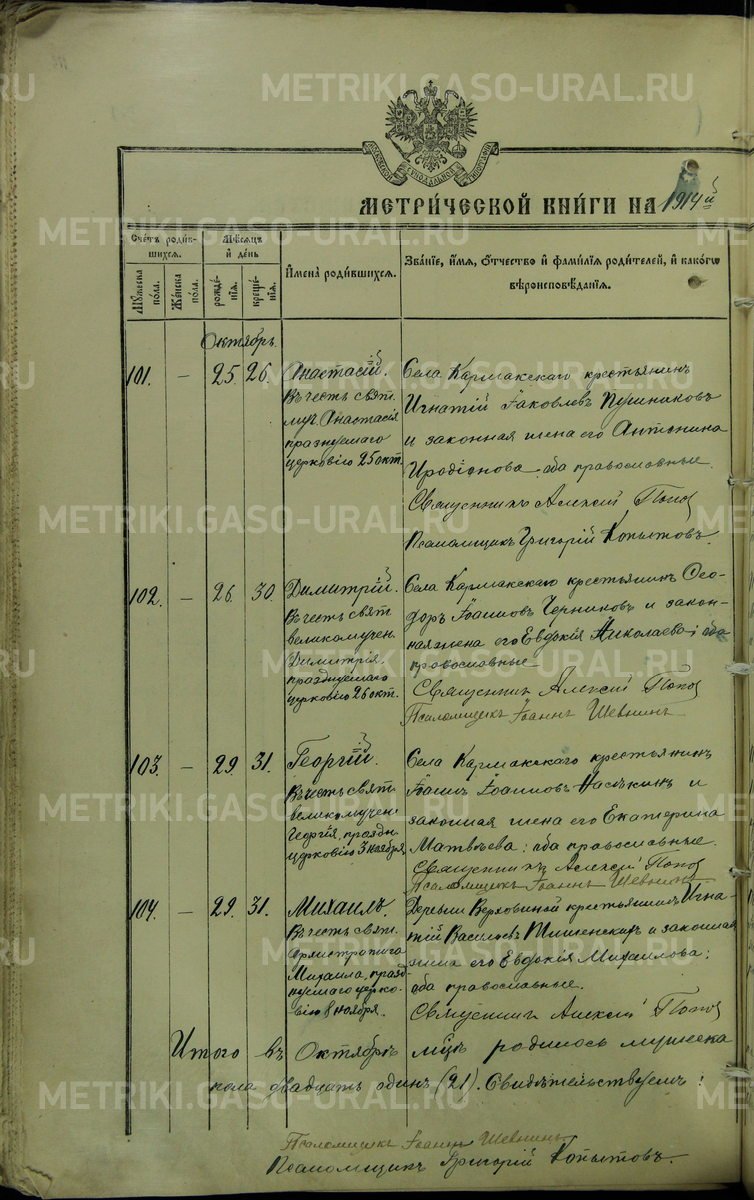 METRIKI.GASO-URAL.RU
МЕТРИЧЕСКОЙ КНИГИ НА 1914й
Счетъ родив-
шихся.
Мужеска пола.
Женска пола.
Мѣсяцъ
и день
рожде-
нія.
креще-
нія.
Имена родившихся.
Званіе, имя, отчество и фамилія родителей, и какого
вѣроисповѣданія.
Октябрь.
101. — 25. 26.
Анастасій.
Въ честь свят.
муч. Анастасія
празнуемаго
церковію 25 окт.
Села Кармакскаго крестьянинъ
Игнатій Іаковлевъ Пушниковъ
и законная жена его Антонина
Иродіонова, оба православные.
Священникъ Алексій Попо
Псаломщикъ Григорій Копытовъ.
102. — 26. 30.
Димитрій.
Въ честь свят.
великомучен.
Димитрія,
празднуемаго
церковію 26 окт.
Села Кармакскаго крестьянинъ Ѳео-
доръ Іоанновъ Черниковъ и закон-
ная жена его Евдокія Николаева; оба
православные
Священникъ Алексій Попо
Псаломщикъ Іоаннъ Шевнинъ
103. — 29. 31.
Георгій.
Въ честь свят.
великомучен.
Георгія, праздн.
церковію 3 ноября
Села Кармакскаго крестьянинъ
Іоаннъ Іоанновъ Насѣкинъ и
законная жена его Екатерина
Матвѣева; оба православные.
Священникъ Алексій Попо
Псаломщикъ Іоаннъ Шевнинъ
104. — 29. 31.
Михаилъ.
Въ честь свят.
Архистратига
Михаила, празд-
нуемаго церко-
вію 8 ноября.
Деревни Верховиной крестьянинъ Игна-
тій Васильевъ и законная
жена его Евдокія Михаилова;
оба православные.
Священникъ Алексій Попо
Итого въ Октябрѣ мцѣ родилось мужеска
пола двадцать одинъ (21). Свидѣтельствуемъ:
Псаломщикъ Іоаннъ Шевнинъ
Псаломщикъ Григорій Копытовъ.